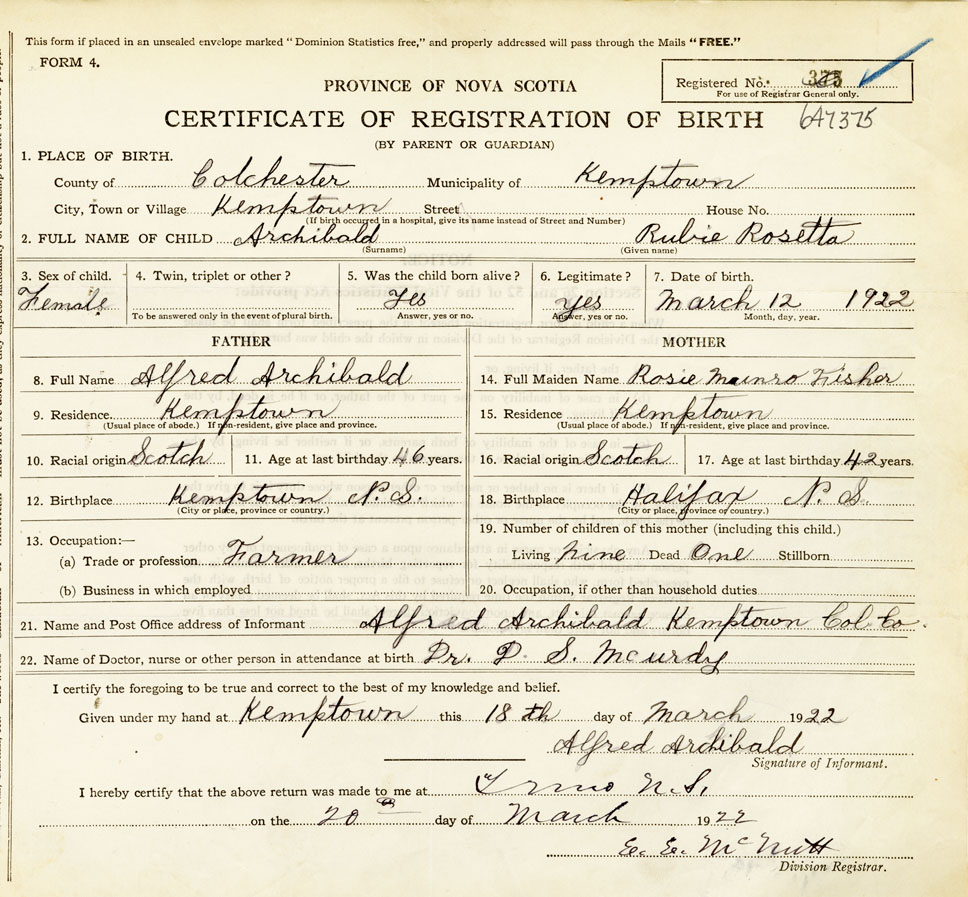 This form if placed in an unsealed envelope marked "Dominion Statistics free," and properly addressed will pass through the Mails "FREE."
FORM 4.
Registered No.
For use of Registrar General only.
PROVINCE OF NOVA SCOTIA
CERTIFICATE OF REGISTRATION OF BIRTH 647375
(BY PARENT OR GUARDIAN)
1. PLACE OF BIRTH.
County of Colchester Municipality of Kemptown
City, Town or Village Kemptown Street House No.
(If birth occurred in a hospital, give its name instead of Street and Number)
2. FULL NAME OF CHILD Archibald Rubie Rosetta
(Surname) (Given name)
3. Sex of child. 4. Twin, triplet or other? 5. Was the child born alive? 6. Legitimate? 7. Date of birth.
Female Yes yes March 12 1922
To be answered only in the event of plural birth. Answer, yes or no. Answer, yes or no. Month, day, year.
FATHER MOTHER
8. Full Name Alfred Archibald 14. Full Maiden Name Rosie Munro Fisher
9. Residence. Kemptown 15. Residence Kemptown
(Usual place of abode.) If non-resident, give place and province. (Usual place of abode.) If non-resident, give place and province.
10. Racial origin Scotch 11. Age at last birthday 46 years. 16. Racial origin Scotch 17. Age at last birthday 42 years.
12. Birthplace Kemptown N. S. 18. Birthplace Halifax N. S.
(City or place, province or country.) (City or place, province or country.)
13. Occupation:— 19. Number of children of this mother (including this child.)
(a) Trade or profession Farmer Living Nine Dead One Stillborn
(b) Business in which employed 20. Occupation, if other than household duties
21. Name and Post Office address of Informant Alfred Archibald Kemptown Col. Co.
22. Name of Doctor, nurse or other person in attendance at birth Dr. D. S. McCurdy
I certify the foregoing to be true and correct to the best of my knowledge and belief.
Given under my hand at Kemptown this 18th day of March 1922
Alfred Archibald
Signature of Informant.
I hereby certify that the above return was made to me at Truro N.S.
on the 20th day of March 1922
E. E. McNutt
Division Registrar.